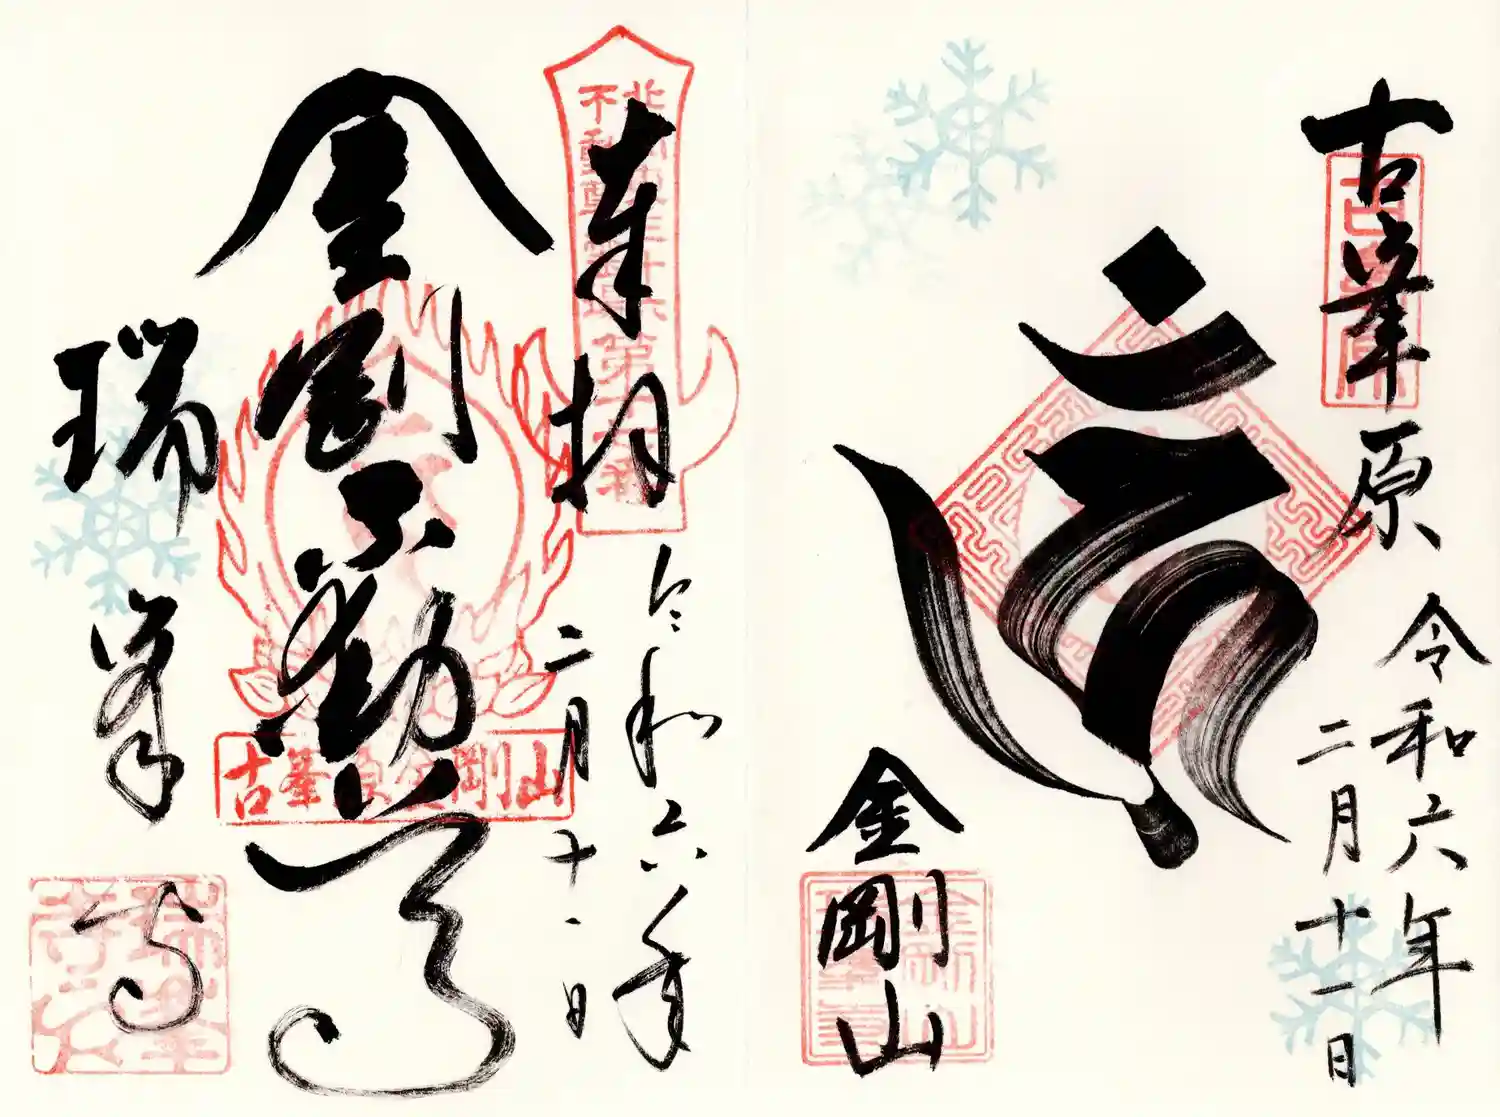 古峯原
古峯原
令和六年
二月十一日
金剛山
奉拝
北関東三十六
不動尊霊場
令和六年
二月十一日
金剛不動尊
古峯原金剛山
瑞峯寺